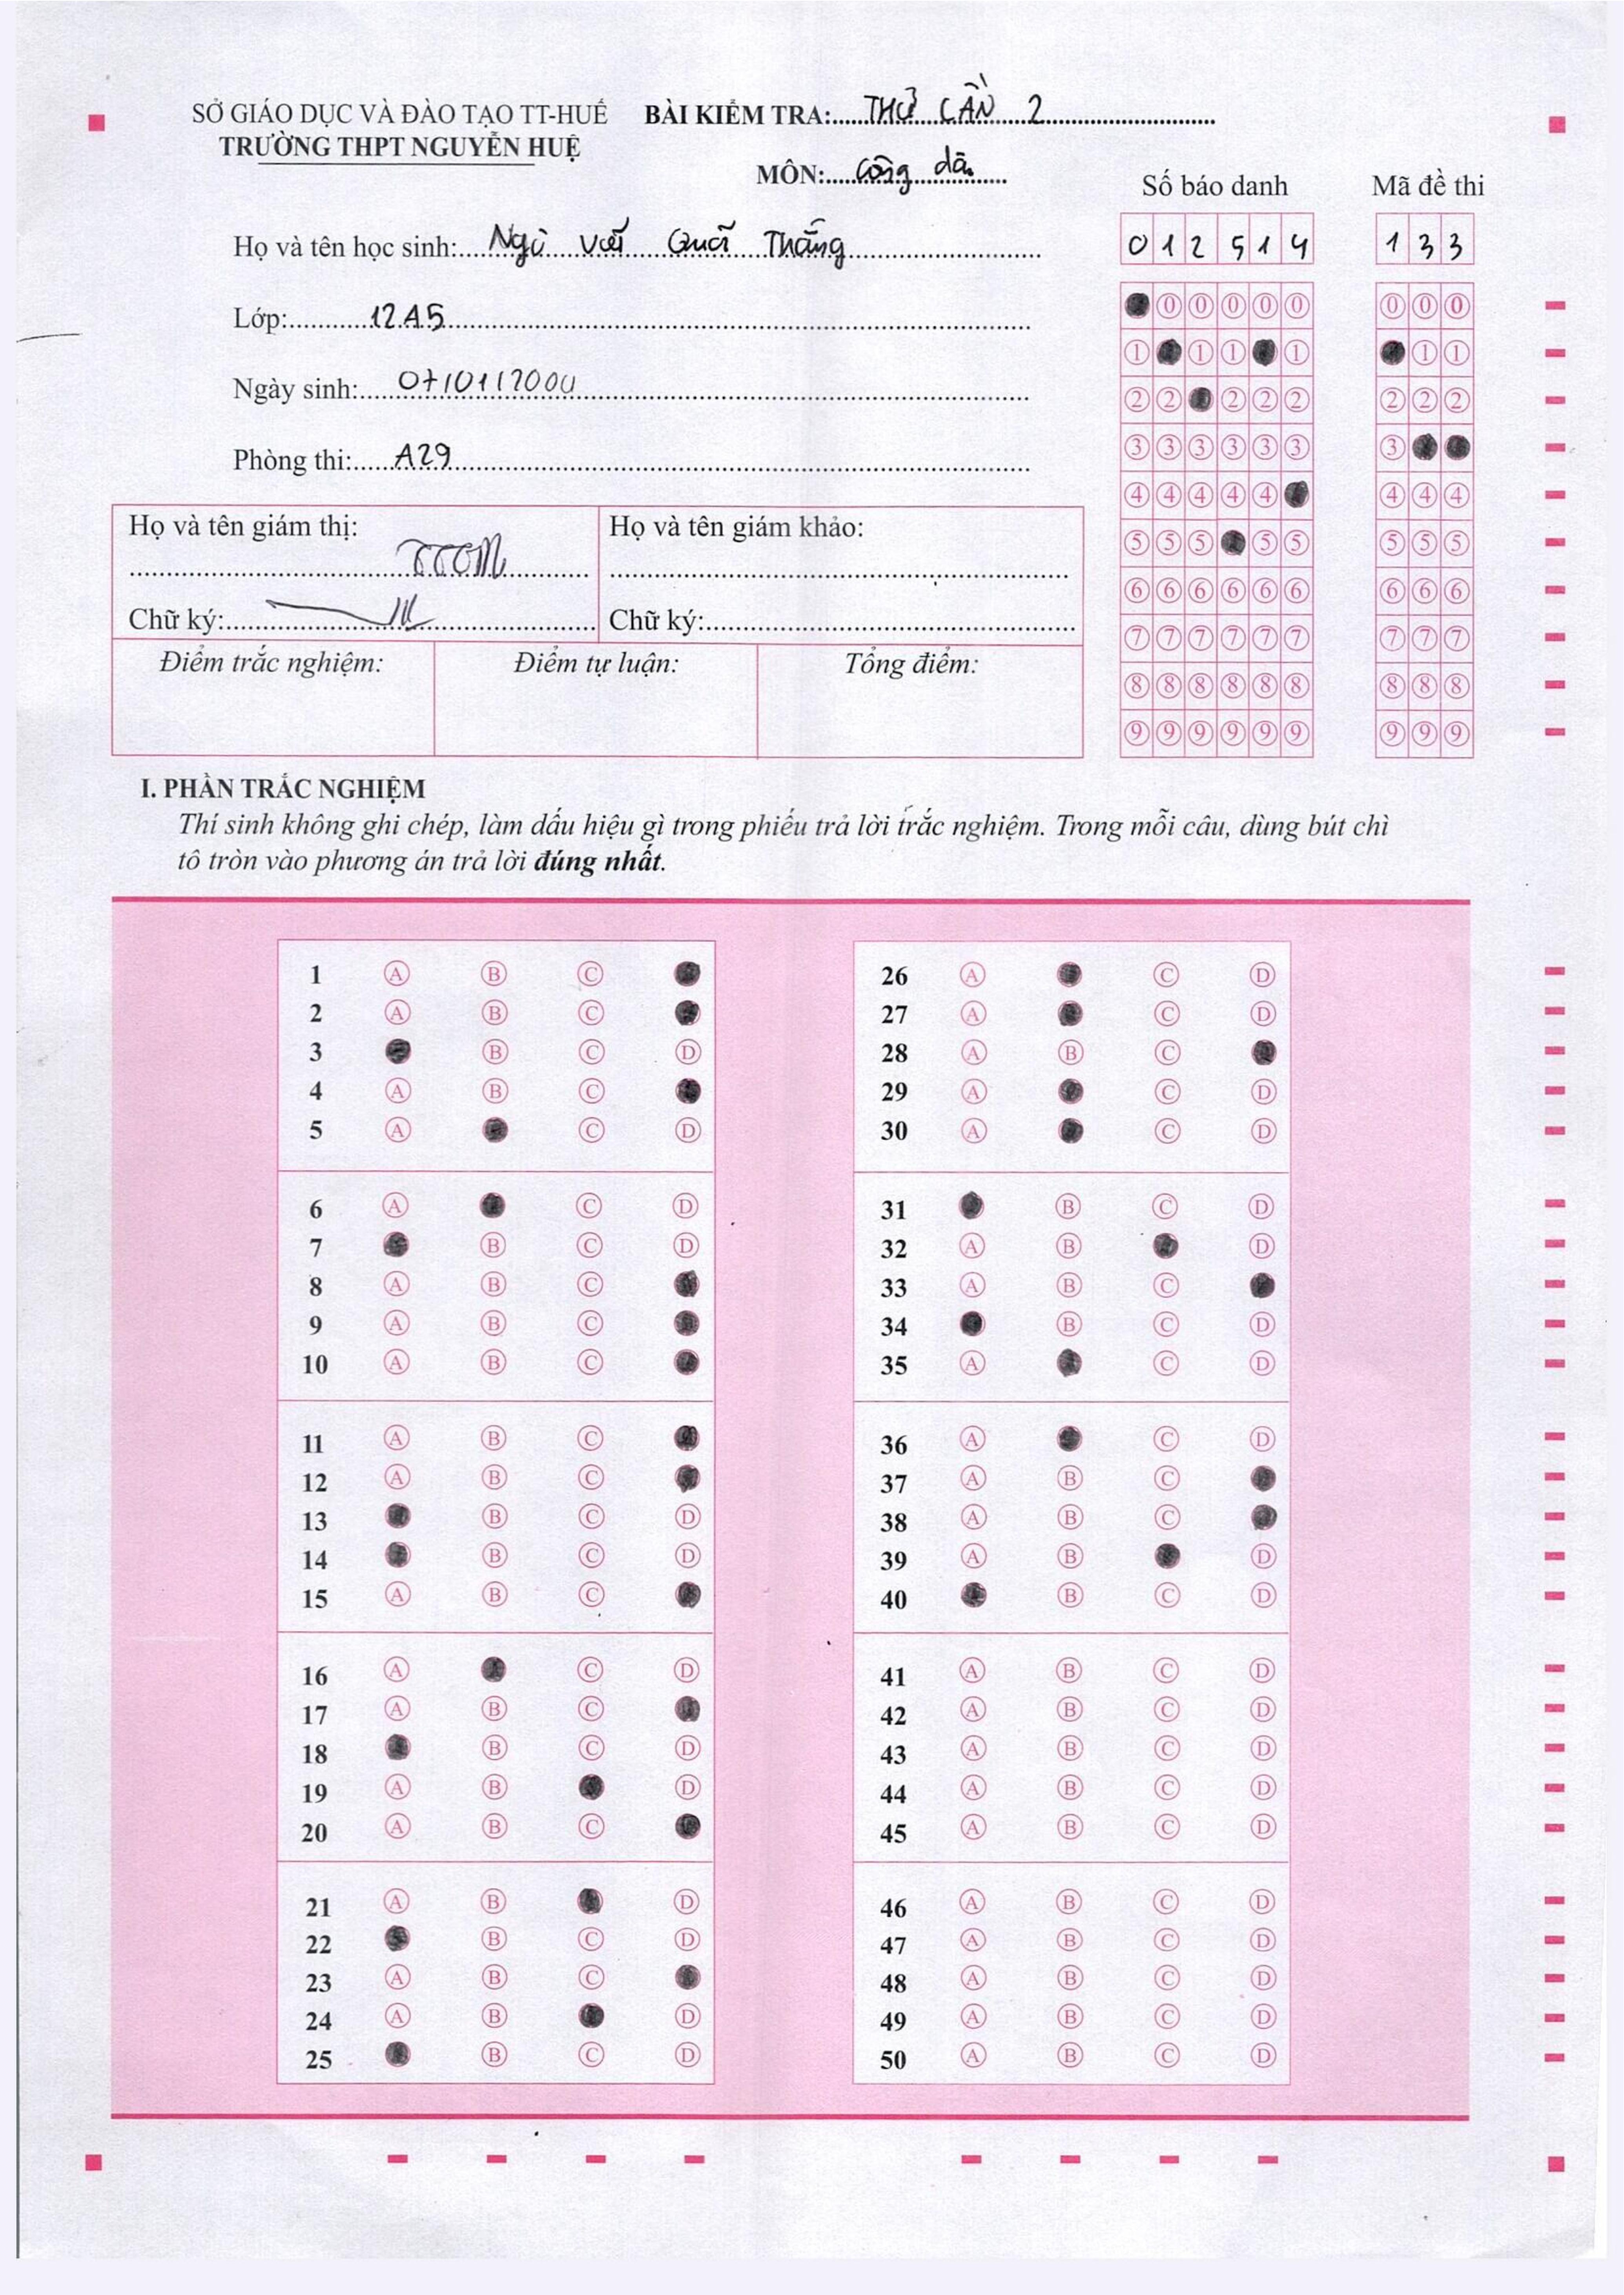 SỞ GIÁO DỤC VÀ ĐÀO TẠO TT-HUẾ
TRƯỜNG THPT NGUYỄN HUỆ
BÀI KIỂM TRA: THỬ LẦN 2
MÔN: Công dân
Họ và tên học sinh: Ngô Viết Thắng
Lớp: 12A5
Ngày sinh: 07/01/2000
Phòng thi: A29
Số báo danh
0 1 2 5 1 4
0 0 0 0 0
1 1 1 1
2 2 2 2 2
3 3 3 3 3 3
4 4 4 4 4
5 5 5 5 5
6 6 6 6 6 6
7 7 7 7 7 7
8 8 8 8 8 8
9 9 9 9 9 9
Mã đề thi
1 3 3
0 0 0
1 1
2 2 2
3
4 4 4
5 5 5
6 6 6
7 7 7
8 8 8
9 9 9
Họ và tên giám thị:
Chữ ký:
Họ và tên giám khảo:
Chữ ký:
Điểm trắc nghiệm:
Điểm tự luận:
Tổng điểm:
I. PHẦN TRẮC NGHIỆM
Thí sinh không ghi chép, làm dấu hiệu gì trong phiếu trả lời trắc nghiệm. Trong mỗi câu, dùng bút chì
tô tròn vào phương án trả lời đúng nhất.
1 A B C
2 A B C
3 B C D
4 A B C
5 A C D
6 A C D
7 B C D
8 A B C
9 A B C
10 A B C
11 A B C
12 A B C
13 B C D
14 B C D
15 A B C
16 A C D
17 A B C
18 B C D
19 A B D
20 A B C
21 A B D
22 B C D
23 A B C
24 A B D
25 B C D
26 A C D
27 A C D
28 A B C
29 A C D
30 A C D
31 B C D
32 A B D
33 A B C
34 B C D
35 A C D
36 A C D
37 A B C
38 A B C
39 A B D
40 B C D
41 A B C D
42 A B C D
43 A B C D
44 A B C D
45 A B C D
46 A B C D
47 A B C D
48 A B C D
49 A B C D
50 A B C D